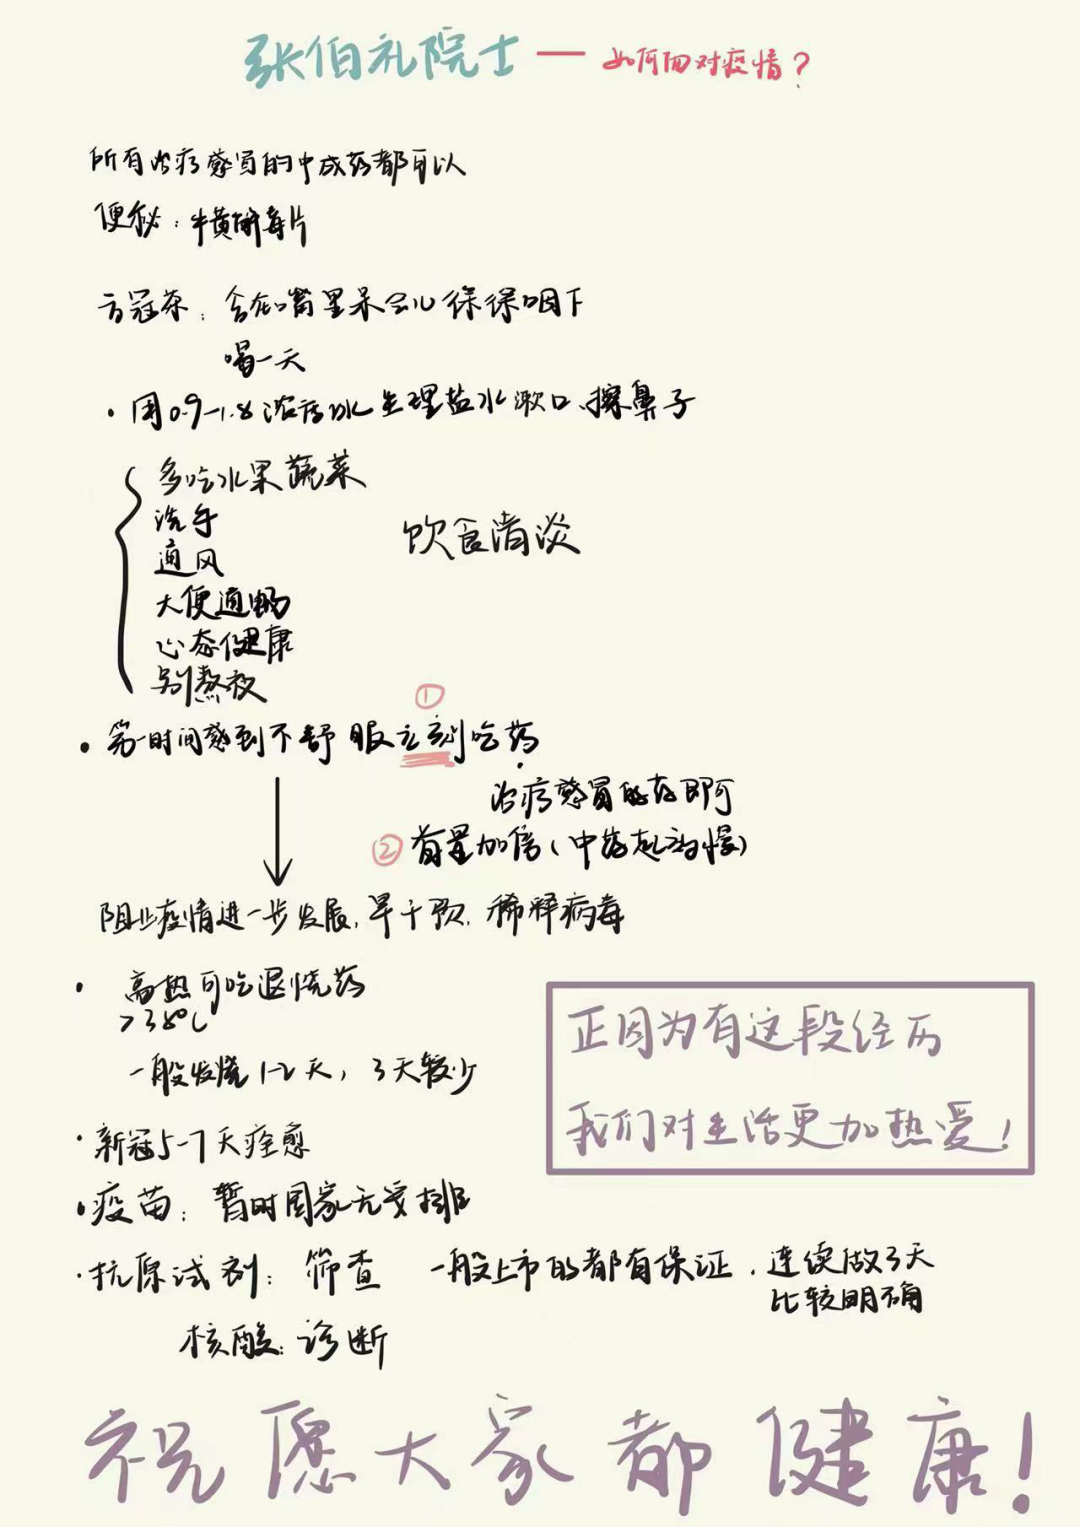 张伯礼院士 — 如何面对疫情?
所有治疗感冒的中成药都可以
便秘:牛黄解毒片
方冠茶:含在嘴里呆会儿 缓缓咽下
喝一天
· 用0.9-1.8浓度 生理盐水漱口、擦鼻子
多吃水果蔬菜
洗手
通风
饮食清淡
大便通畅
心态健康
别熬夜
①
· 第一时间感到不舒服立刻吃药
治疗感冒的药即可
② 首量加倍(中药起效慢)
阻止疫情进一步发展,早干预,稀释病毒
· 高热可吃退烧药
>38℃
一般发烧1-2天,3天较少
正因为有这段经历
我们对生活更加热爱!
· 新冠5-7天痊愈
· 疫苗:暂时国家无安排
· 抗原试剂:筛查 一般上市的都有保证,连续做3天
比较明确
核酸:诊断
祝愿大家都健康!